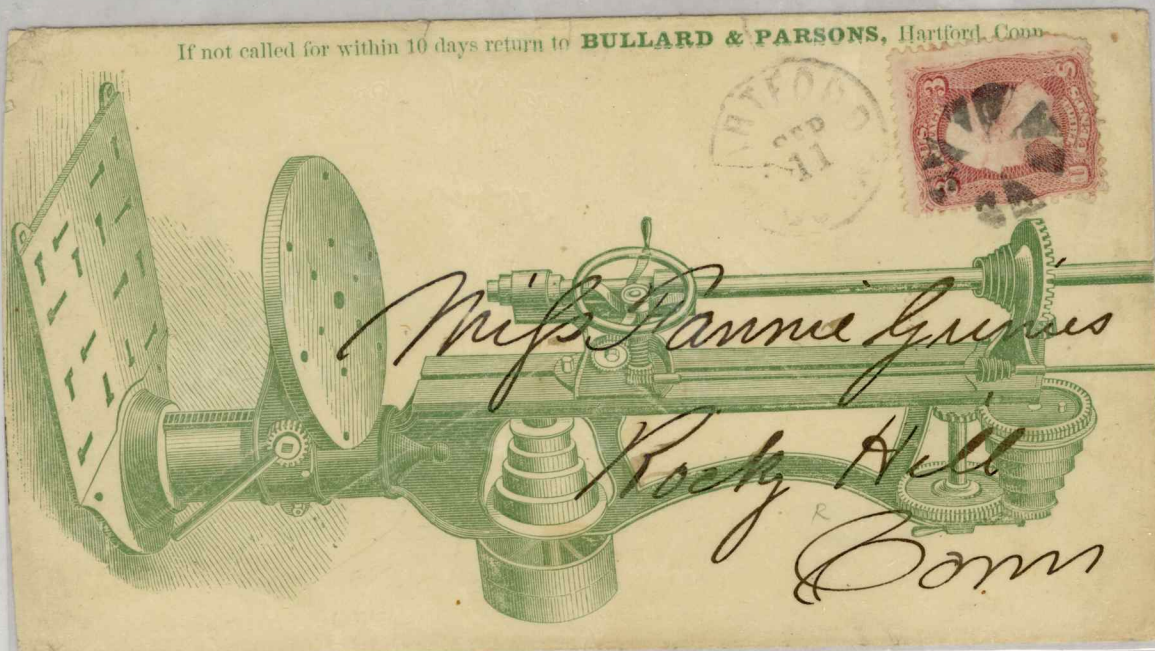 If not called for within 10 days return to BULLARD & PARSONS, Hartford, Conn.
SEP
11
3
3
U
S
Miss Fannie Grimes
Rocky Hill
Conn
R